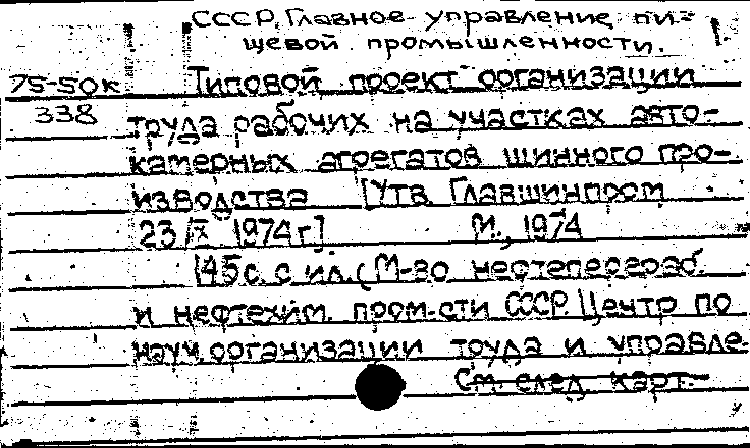 СССР, Главное управление пи-
щевой промышленности.
75-50к Типовой проект организации
338 труда рабочих на участках авто-
камерных агрегатов шинного про-
изводства [Утв Главшинпром
23/IX 1974 г] М., 1974
145 с. с ил. (М-во нефтеперераб.
и нефтехим. пром-сти СССР. Центр по
науч. организации труда и управле-
См. след. карт.